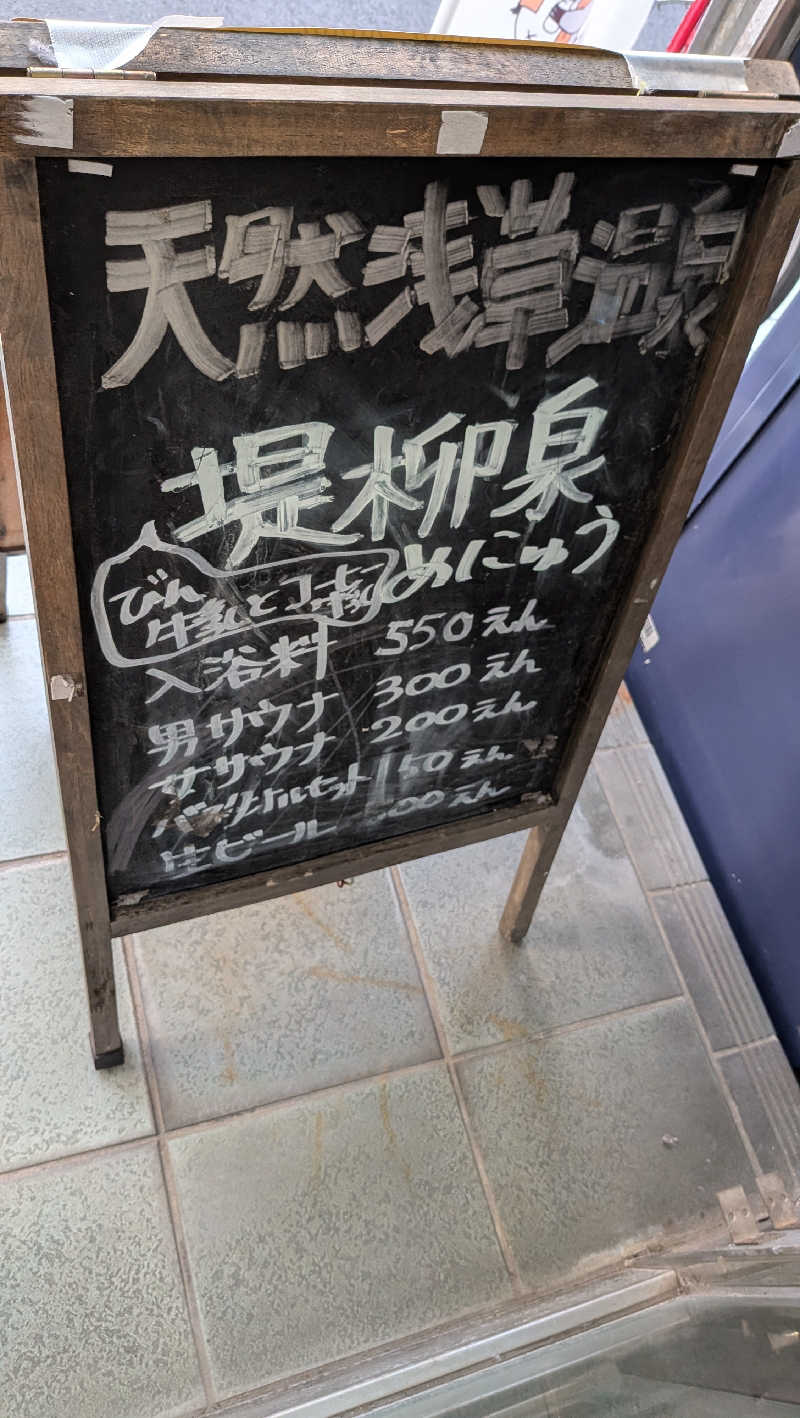 天然浅草温泉
堤柳泉
めにゅう
びん
牛乳とコーヒー牛乳
入浴料 550えん
男サウナ 300えん
女サウナ 200えん
バスタオルセット 150えん
生ビール 00えん